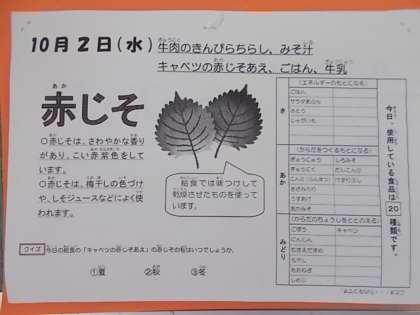 10月2日(水)牛肉のきんぴらちらし、みそ汁
キャベツの赤じそあえ、ごはん、牛乳
あか
赤じそ
○赤じそは、さわやかな香り
があり、こい赤紫色をして
います。
○赤じそは、梅干しの色づけ
や、しそジュースなどによく使
われます。
給食では味つけして
乾燥させたものを使って
います。
クイズ 今日の給食の「キャベツの赤じそあえ」の赤じその旬はいつでしょうか。
①夏 ②秋 ③冬
今日、使用している食品は20種類です。
き
(エネルギーのもとになる)
ごはん
サラダあぶら
さとう
じゃがいも
あか
(からだをつくるもとになる)
ぎゅうにゅう しろみそ
ぎゅうにく だいこんば
あかみそ
みどり
(からだのちょうしをととのえる)
ごぼう キャベツ
にんじん
もやし
たまねぎ
しめじ